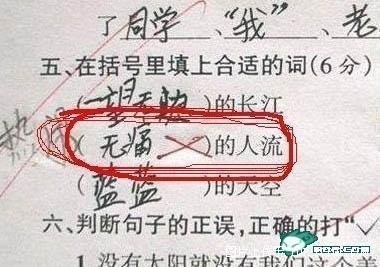 了同学、“我”、老
五、在括号里填上合适的词(6分)
(一望无际)的长江
(无痛)的人流
(蓝蓝)的天空
六、判断句子的正误，正确的打“√
1. 没有太阳就没有我们这个美